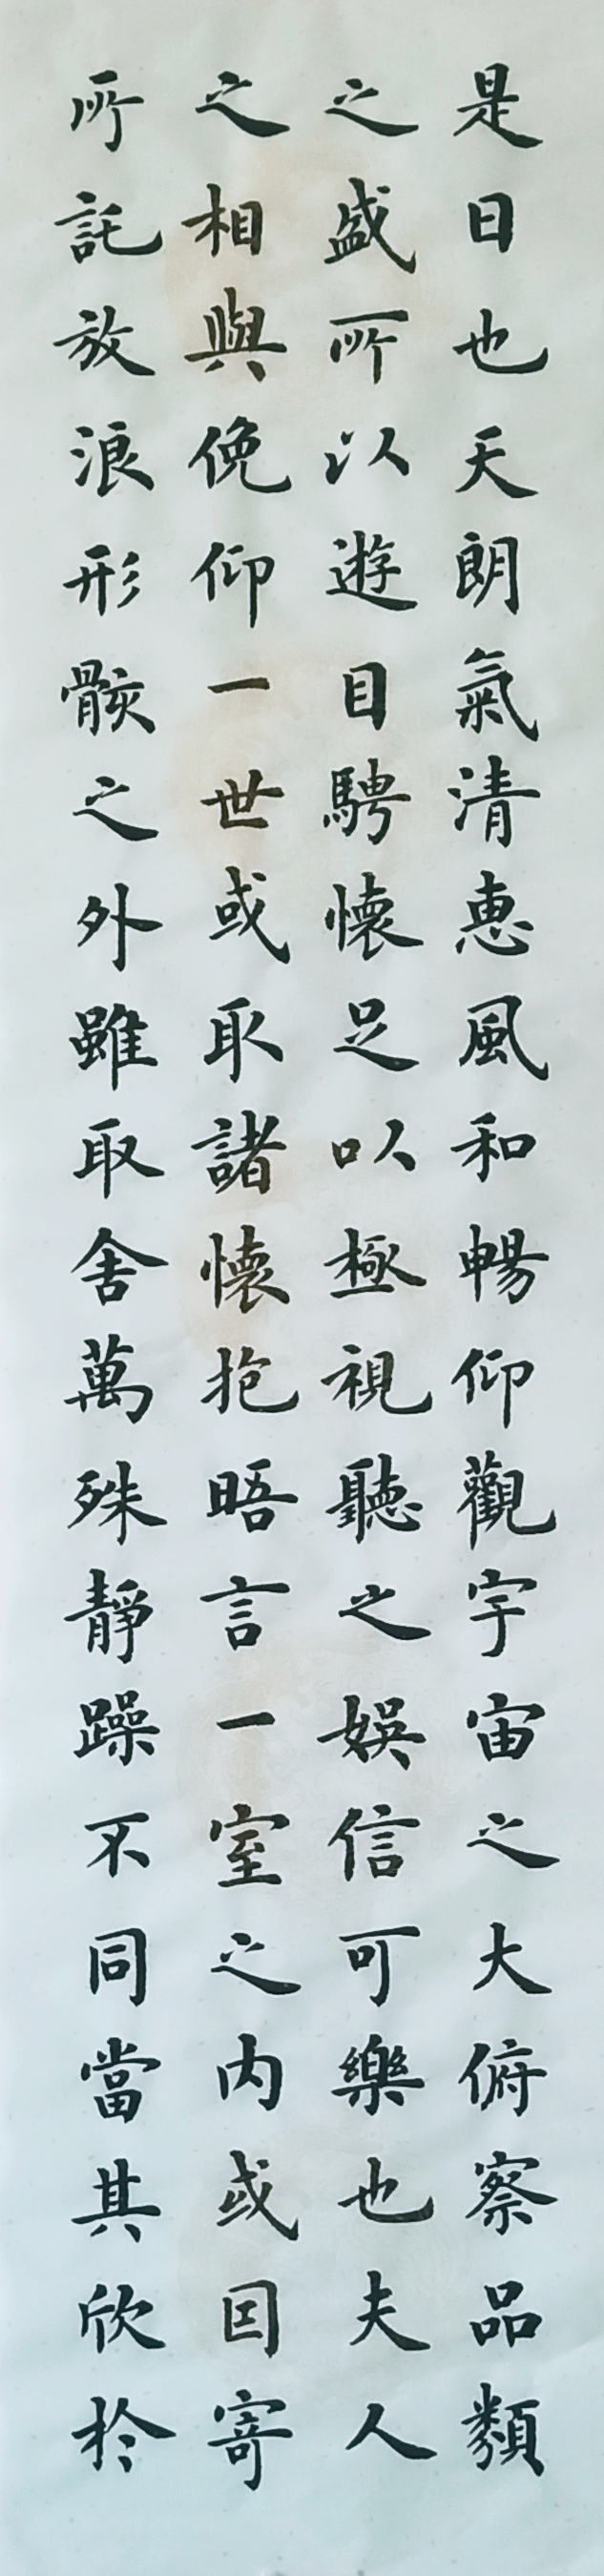 是日也天朗氣清惠風和暢仰觀宇宙之大俯察品類
之盛所以遊目騁懷足以極視聽之娛信可樂也夫人
之相與俛仰一世或取諸懷抱晤言一室之内或因寄
所託放浪形骸之外雖取舍萬殊静躁不同當其欣於